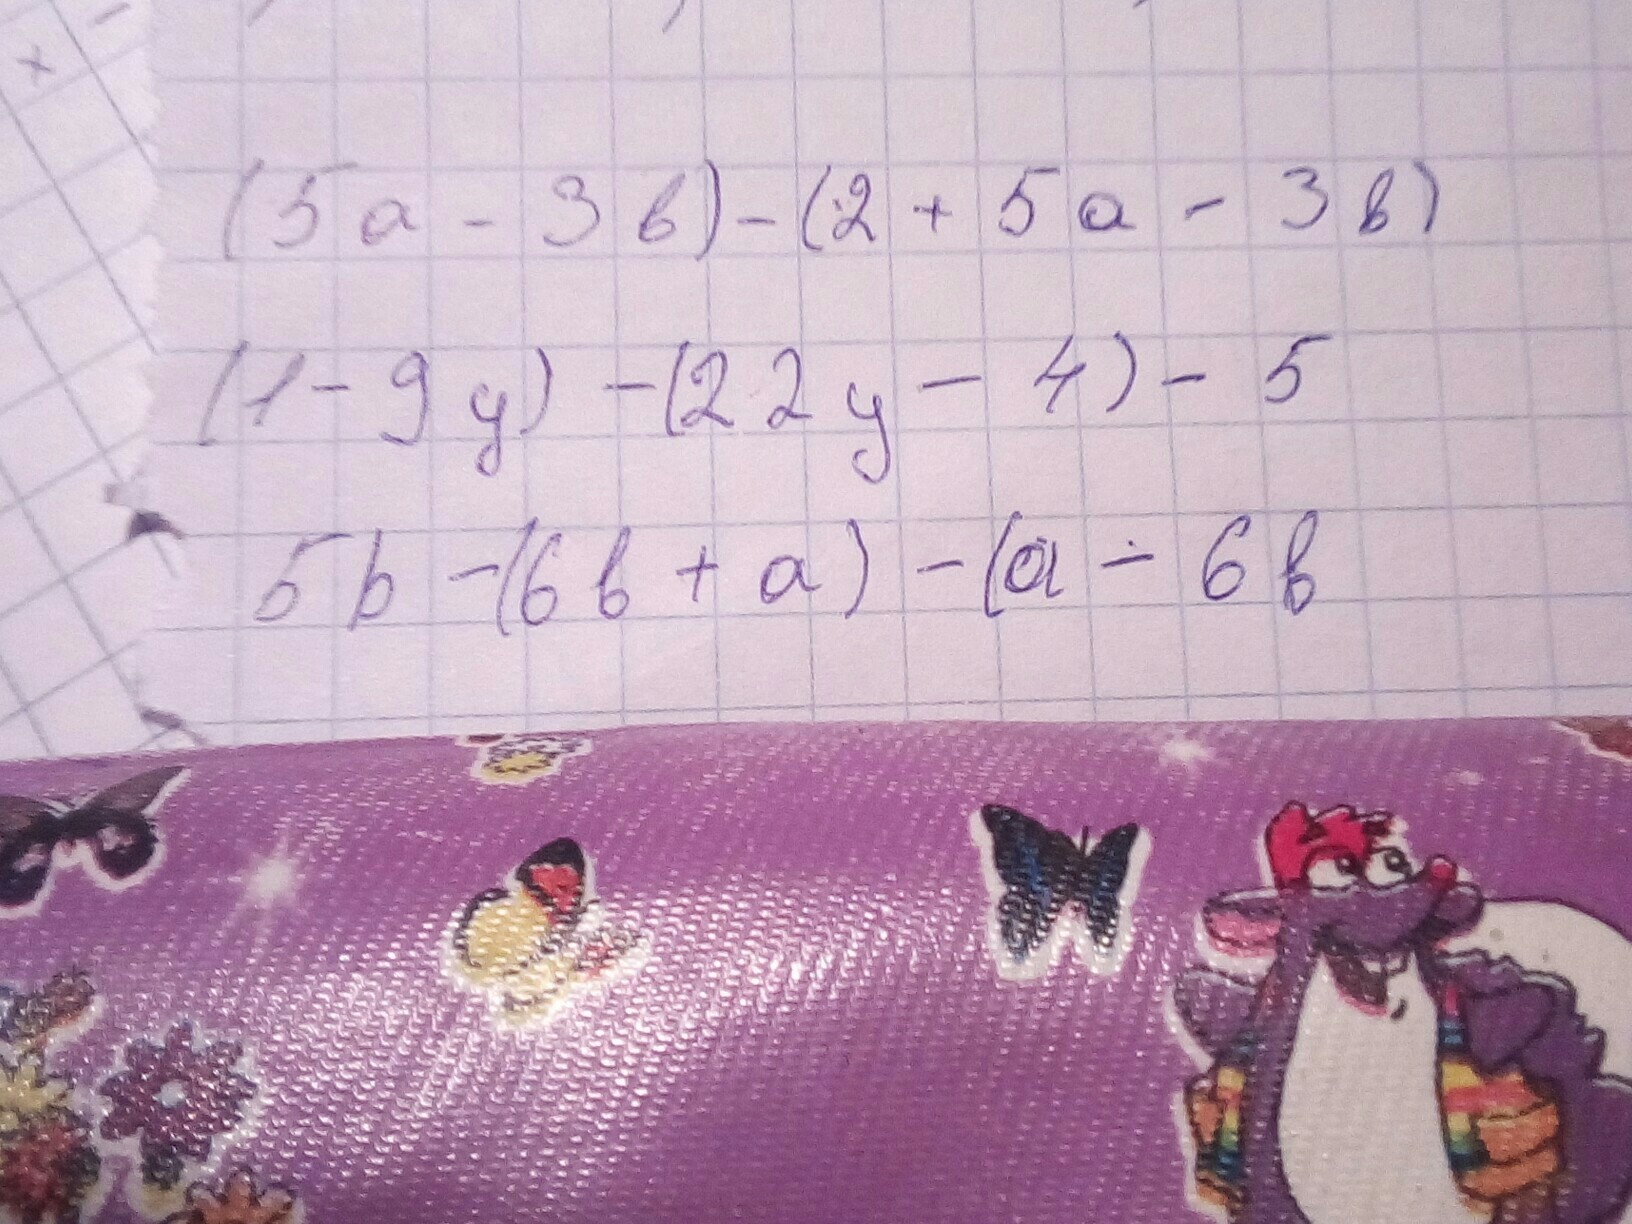 (5a - 3b) - (2 + 5a - 3b)
(1 - 9y) - (22y - 4) - 5
5b - (6b + a) - (a - 6b